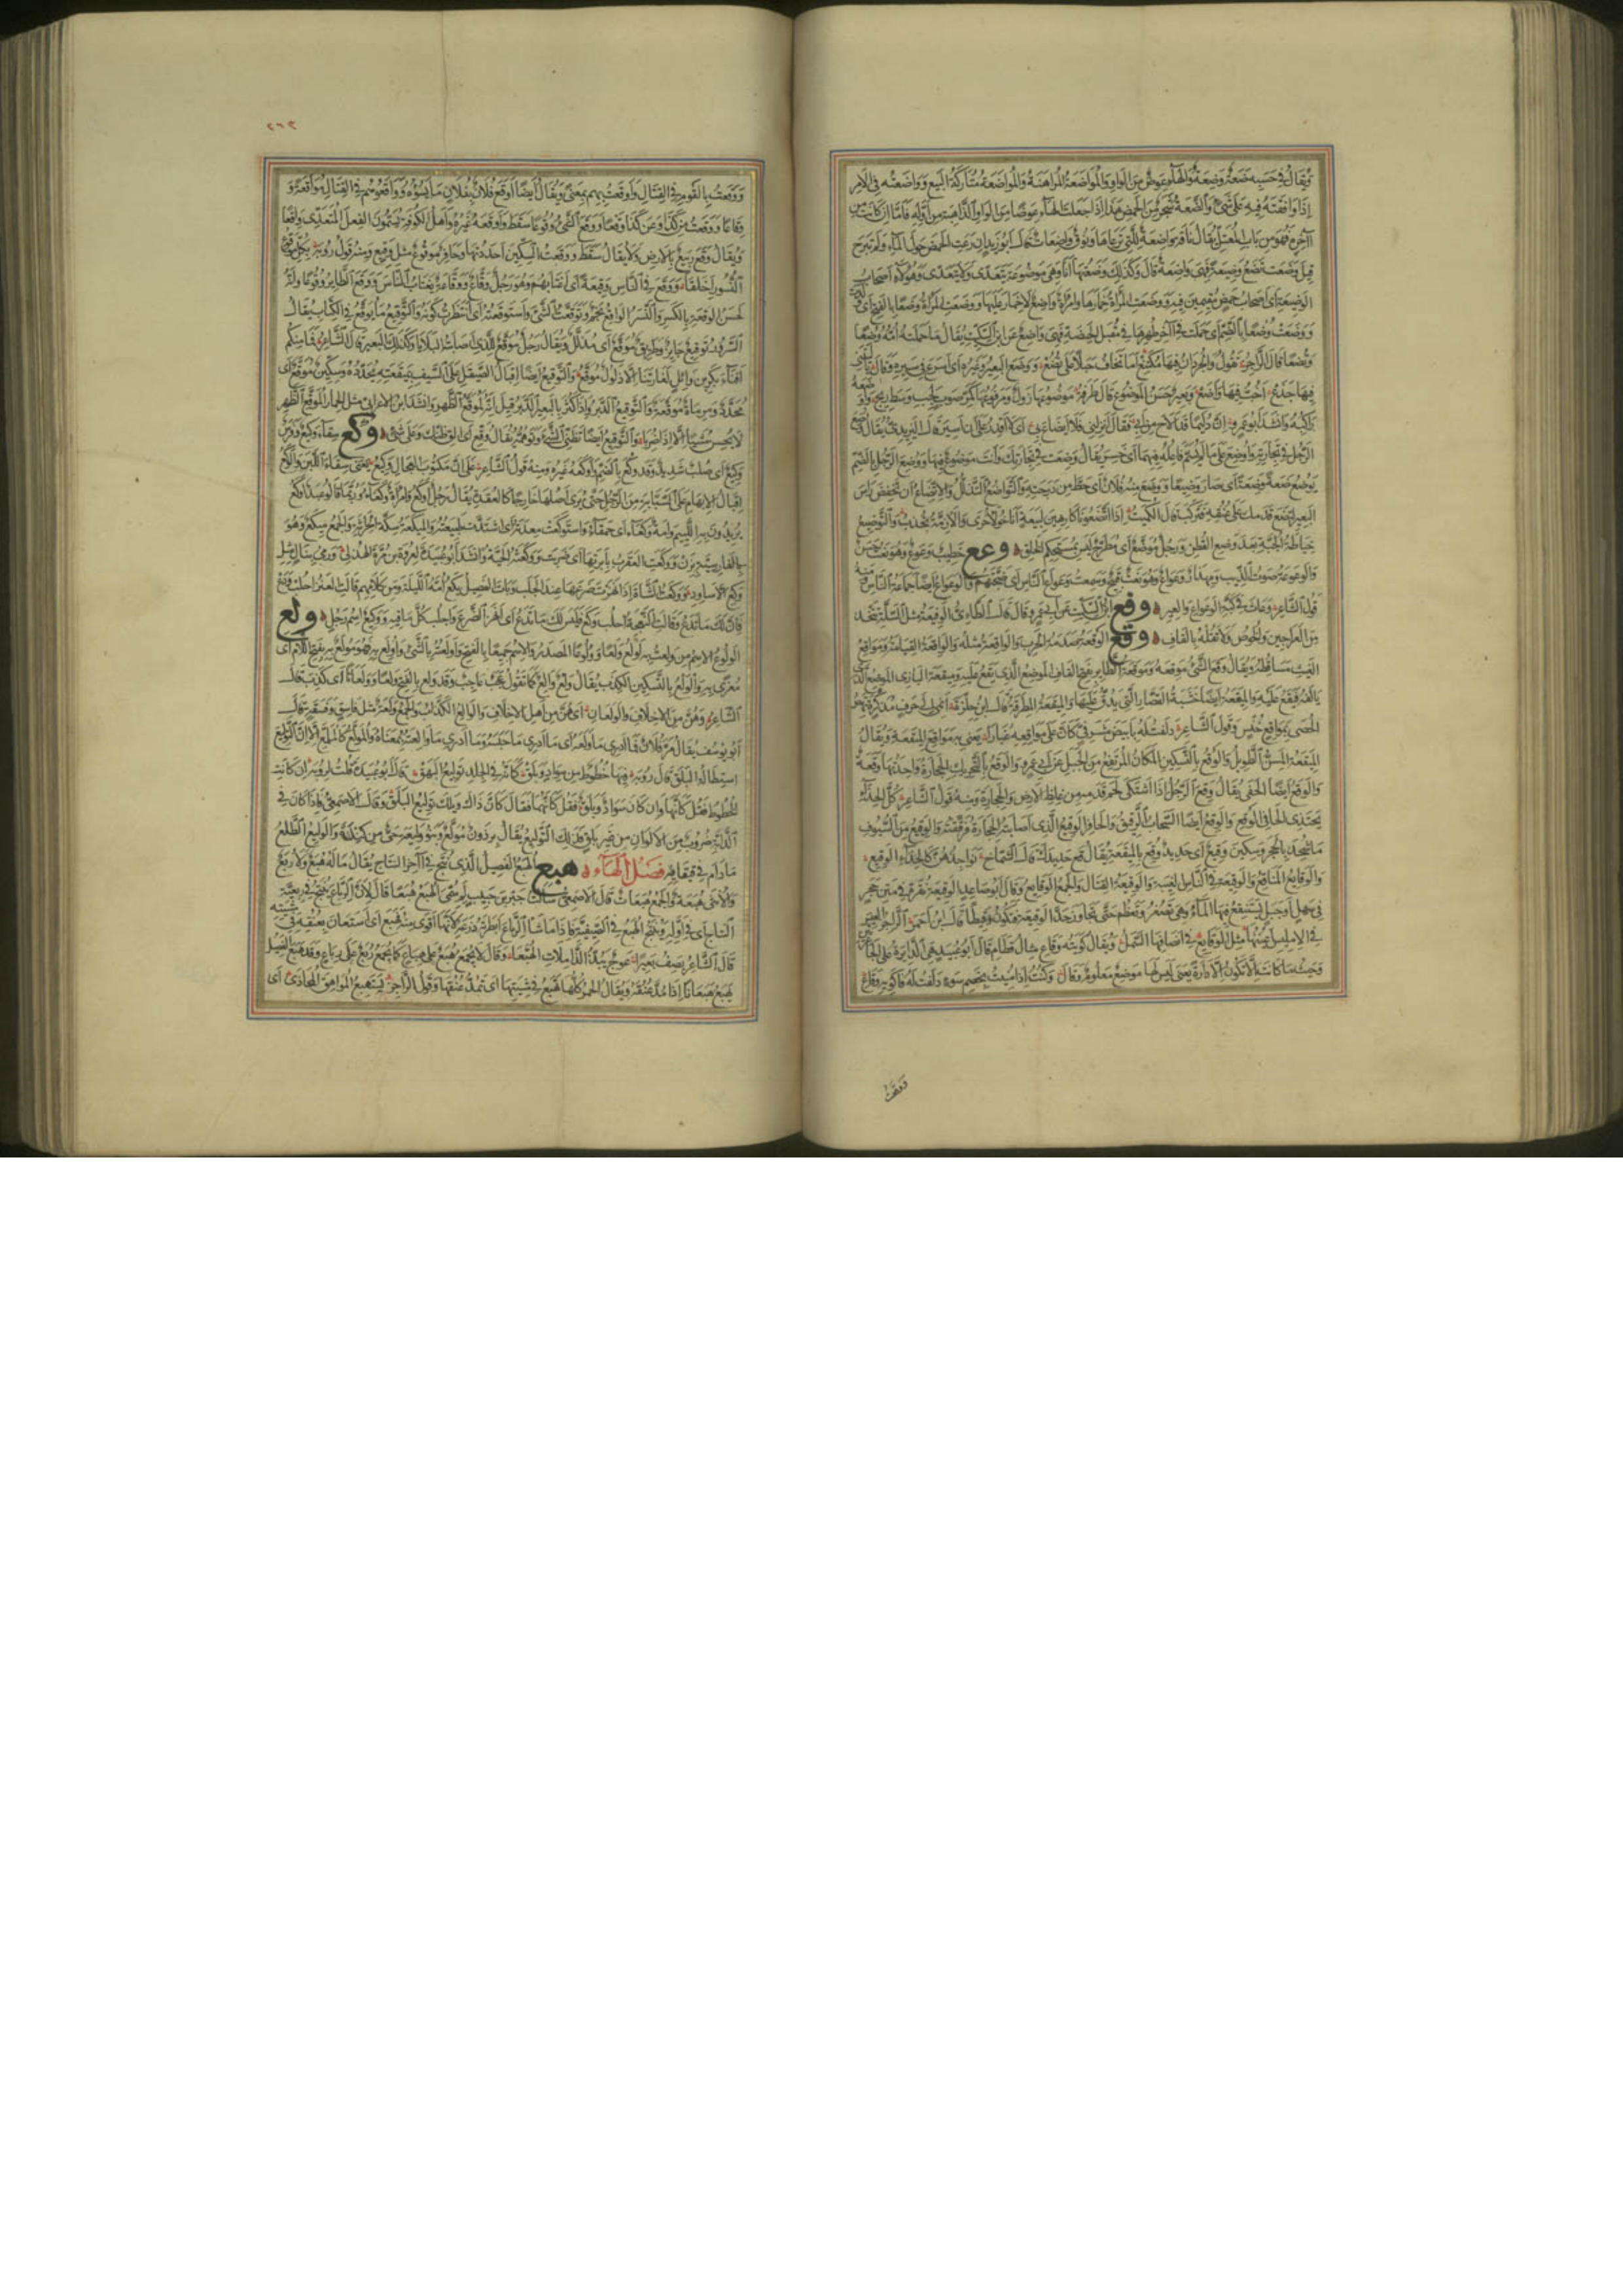 ويقال في حسبه ضعة وضعة والهاء عوض من الواو والمواضعة المراهنة والمواضعة متاركة البيع وواضعته في الامر
اذا وافقته فيه على شئ والضعة شجر من الحمض هذا اذا جعلت الهاء عوضا من الواو الذاهبة من اوله فاما ان كانت من
آخره فهو من باب المعتل يقال ناقة واضعة للتي ترعاها ونوق واضعات قال ابو زيد ان رعت الحمض حول الماء ولم تبرح
قيل وضعت تضع وضيعة فهي واضعة قال وكذلك وضعتها انا وهي موضوعة يتعدى ولا يتعدى وهؤلاء اصحاب
الوضيعة اي اصحاب حمض مقيمين فيه ووضعت المرأة خمارها وامرأة واضع لا خمار عليها ووضعت المرأة وضعا بالفتح اي
ووضعت وضعا بالضم اي حملت في آخر طهرها في مقبل الحيضة فهي واضع عن ابن السكيت يقال ما حملته امه وضعا
وتضعا قال الراجز تقول والجردان فيها مكتنع اما تخاف حبلا على تضع ووضع البعير وغيره اي اسرع في سيره وقال
فيها جذع اخب فيها واضع وبعير حسن الموضوع قال طرفة موضوعها زول ومرفوعها كمر صوب لجب وسط ريح
الرجل في تجارته واوضع على ما لم يسم فاعله فيهما اي خسر يقال وضعت في تجارتك وانت موضوع فيها ووضع الرجل بالضم
يوضع ضعة وضعة اي صار وضيعا ووضع منه فلان اي حط من درجته والتواضع التذلل والاتضاع ان تخفض راس
البعير لتضع قدمك على عنقه فتركب قال الكميت اذا اتضعونا كارهين لبيعة اناخوا لاخرى والازمة تجذب والتوضيع
خياطة الجبة بعد وضع القطن ورجل موضع اي مطرح ليس بمستحكم الخلق وعع خطيب وعوع وهو نعت حسن
والوعوعة صوت الذيب ومهذار وعواع وهو نعت قبيح وسمعت وعواع الناس اي ضجتهم والوعواع ايضا جماعة الناس
قول الشاعر وعاث في كبة الوعواع والعير وفع ابن السكيت عن ابي عمرو قال قال الطاءي الوفيعة مثل السلة تتخذ
من العراجين والخوص ولا تقله بالقاف وقع الوقعة صدمة الحرب والواقعة مثله والواقعة القيامة ومواقع
الغيث مساقطه ويقال وقع الشئ موقعه وموقعة الطاير بفتح القاف الموضع الذي يقع عليه وميقعة البازي الموضع الذي
يالفه فيقع عليه والميقعة ايضا خشبة القصار التي يدق عليها والميقعة المطرقة قال ابن حلزة
الحصى بمواقع خنس وقول الشاعر دلفت له بابيض مشرفي كان على مواقعه غبارا يعني به مواقع الميقعة ويقال
الميقعة المسن الطويل والوقع بالتسكين المكان المرتفع من الجبل عن ابي عمرو والوقع بالتحريك الحجارة واحدتها وقعة
والوقع ايضا الحفى يقال وقع الرجل اذا اشتكى لحم قدميه من غلظ الارض والحجارة ومنه قول الشاعر كل الحذاء
يحتذي الحافي الوقع والوقع ايضا السحاب الرقيق والحافر الوقيع الذي اصابته الحجارة فوقعته والوقيع من السيوف
ما شحذ بالحجر وسكين وقيع اي حديد وقع بالميقعة يقال قع حديدك قال الشماخ نواجذهن كالحداء الوقيع
والوقايع المناقع والوقيعة في الناس الغيبة والوقيعة القتال والجمع الوقايع وقال ابو صاعد الوقيعة نقرة في متن حجر
في سهل او جبل يستنقع فيها الماء وهي تصغر وتعظم حتى تجاوز حد الوقيعة فتكون وقيطا قال ابن احمر الزاجر العيس
في الامليس اعينها مثل الوقايع في انصافها السمل ويقال كويته وقاع مثال قطام قال ابو عبيد هي الدايرة على الجاعرتين
وحيث ما كانت الا تكون الا دارة يعني ليس لها موضع معلوم وقال وكنت اذا منيت بخصم سوء دلفت له فاكويه وقاع
ووقعت
٢٦٣
ووقعت بالقوم في القتال واوقعت بهم بمعنى ويقال ايضا اوقع فلان بفلان ما يسوءه وواقعوهم في القتال مواقعة و
وقاعا ووقعت من كذا وعن كذا وقعا ووقع الشئ وقوعا سقط واوقعه غيره واهل الكوفة يسمون الفعل المتعدي واقعا
ويقال وقع ربيع بالارض ولا يقال سقط ووقعت السكين احددتها وحافر موقوع مثل وقيع ومنه قول رؤبة بكل موقوع
النسور اخلقا ووقع في الناس وقيعة اي اغتابهم وهو رجل وقاع ووقاعة يغتاب الناس ووقع الطاير وقوعا وانه
لحسن الوقعة بالكسر والنسر الواقع نجم وتوقعت الشئ واستوقعته اي انتظرت كونه والتوقيع ما يوقع في الكتاب يقال
السرور توقيع جايز وطريق موقع اي مذلل ويقال رجل موقع للذي اصابته البلايا وكذلك البعير قال الشاعر فما منكم
افناء بكر بن وايل لغارتنا الا ذلول موقع والتوقيع ايضا اقبال الصيقل على السيف بميقعته يحدده وسكين موقع اي
محدد ومرماة موقعة والتوقيع الدبر واذا كثر بالبعير الدبر قيل انه لموقع الظهر وانشد ابن الاعرابي مثل الحمار الموقع الظهر
لا يحسن مشيا الا اذا ضربا والتوقيع ايضا تظني الشئ وتوهمه يقال وقع اي الق ظنك على شئ وكع سقاء وكيع وفرس
وكيع اي صلب شديد وقد وكع بالضم واوكعه غيره ومنه قول الشاعر على ان مكتوب العجال وكيع يعني سقاء اللبن والوكع
اقبال الابهام على السبابة من الرجل حتى يرى اصلها خارجا كالعقدة يقال رجل اوكع وامراة وكعاء وربما قالوا عبد اوكع
يريدون به اللييم وامة وكعاء اي حمقاء واستوكعت معدته اي اشتدت طبيعته والميكعة سكة الحراثة والجمع ميكع وهو
بالفارسية بزن ووكعت العقرب بابرتها اي ضربت ووكعته الحية وانشد ابو عبيد لعروة بن مرة الهذلي ورمي نبال مثل
وكع الاساود ووكعت الشاة اذا نهزت ضرعها عند الحلب وبات الفصيل يكع امه الليلة ومن كلامهم قالت العنز احلب ودع
فان لك ما تدع وقالت النعجة احلب وكع فليس لك ما تدع اي انهز الضرع واحلب كل ما فيه ووكيع اسم رجل ولع
الولوع الاسم من ولعت به اولع ولعا وولوعا المصدر والاسم جميعا بالفتح واولعته بالشئ واولع به فهو مولع به بفتح اللام اي
مغرى به والولع بالتسكين الكذب يقال ولع والع كما تقول عجب عاجب وقد ولع بالفتح ولعا وولعانا اي كذب قال
الشاعر وهن من الاخلاف والولعان اي هن من اهل الاخلاف والوالع الكذاب والجمع ولعة مثل فاسق وفسقة قال
ابو يوسف يقال مر فلان فما ادري ما ولعه اي ما ادري ما حبسه وما ادري ما والعته بمعناه والمولع كالملمع الا ان التوليع
استطالة البلق قال رؤبة فيها خطوط من سواد وبلق كانه في الجلد توليع البهق قال ابو عبيدة قلت لرؤبة ان كانت
الخطوط فقل كانها وان كان سواد وبلق فقل كانهما فقال كان ذاك ويلك توليع البلق وقال الاصمعي فاذا كان في
الدابة ضروب من الالوان من غير بلق فذلك التوليع يقال برذون مولع وبنو وليعة حي من كندة والوليع الطلع
ما دام في قيقايه فصل الهاء هبع الهبع الفصيل الذي ينتج في آخر النتاج يقال ما له هبع ولا ربع
والانثى هبعة والجمع هبعات قال الاصمعي سالت جبر بن حبيب لم سمي الهبع هبعا قال لان الرباع تنتج في ربعية
النتاج اي في اوله وينتج الهبع في الصيفية فاذا ماشا الرباع ابطرنه ذرعه لانها اقوى منه فهبع اي استعان بعنقه في مشيته
قال الشاعر يصف بعيرا عوج يبذ الذاملات الهبعا وقال لا يجمع هبع على هباع كما يجمع ربع على رباع وقد هبع الفصيل
يهبع هبعانا اذا مد عنقه ويقال الحمر كلها تهبع في مشيتها اي تمد عنقها وقول الراجز فيهبع المواهق المحاذي اي